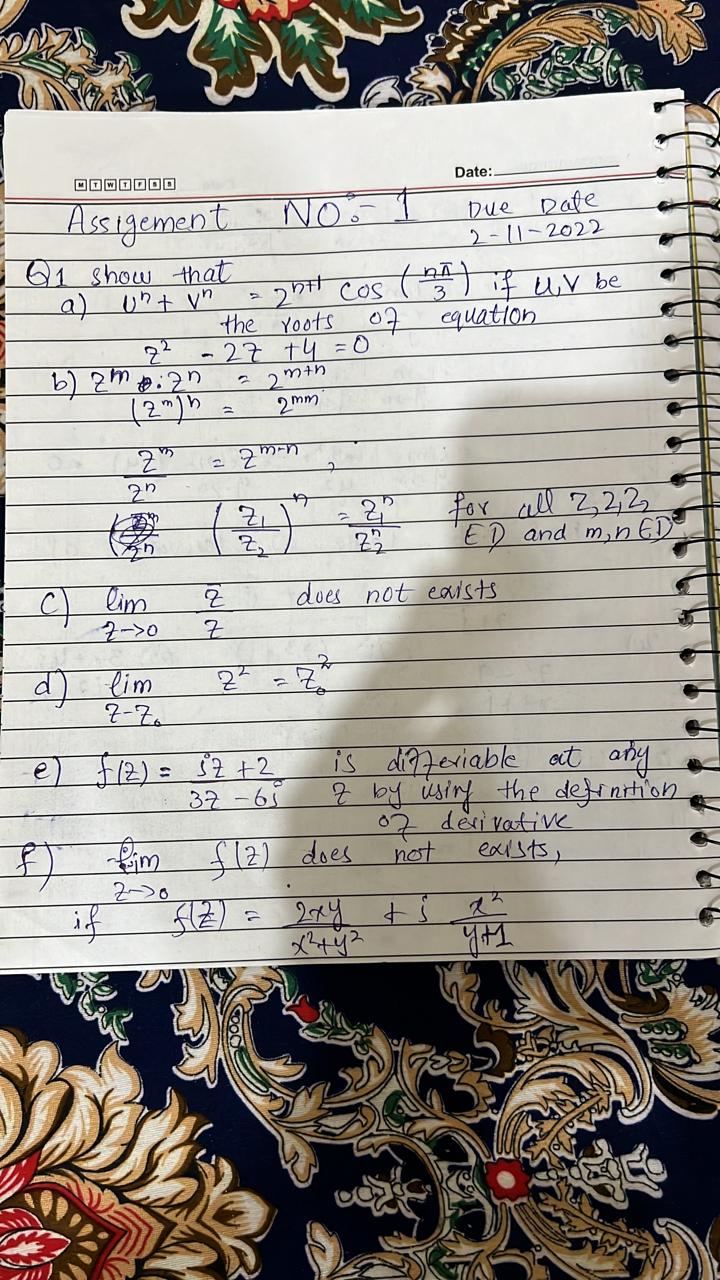 M T W T F S S
Date:
Assigement NO:- 1 Due Date
2-11-2022
Q1 show that
a) Uⁿ + Vⁿ = 2ⁿ⁺¹ cos (nπ/3) if u,v be
the roots of equation
z² - 2z + 4 = 0
b) zᵐ . zⁿ = 2ᵐ⁺ⁿ
(zᵐ)ⁿ = 2ᵐᵐ
zᵐ/zⁿ = zᵐ⁻ⁿ ,
(z₁/z₂)ⁿ = z₁ⁿ/z₂ⁿ for all z, z, z₂
ED and m, n ED
c) lim z→0 z̄/z does not exists
d) lim z-z₀ z² = z₀²
e) f(z) = iz + 2 / 3z - 6i is differiable at any
z by using the definition
of derivative
f) lim z→0 f(z) does not exists,
if f(z) = 2xy / x²+y² + i x² / y+1